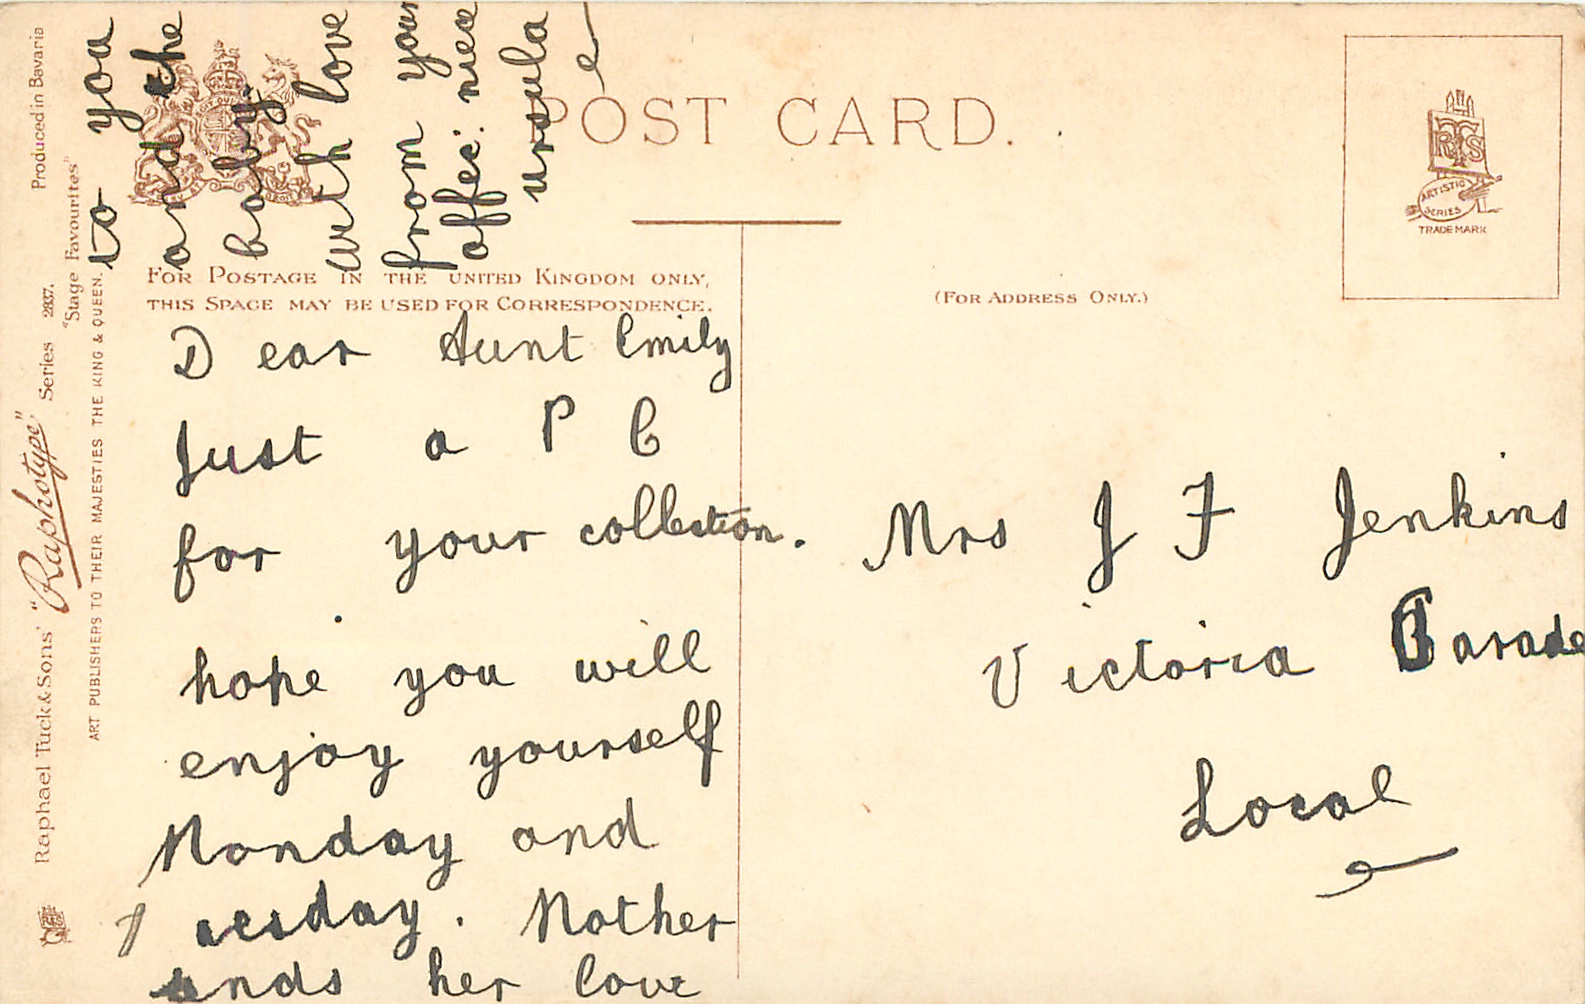 POST CARD.
FOR POSTAGE IN THE UNITED KINGDOM ONLY,
THIS SPACE MAY BE USED FOR CORRESPONDENCE.
(FOR ADDRESS ONLY.)
RTS
ARTISTIC
SERIES
TRADE MARK
Dear Aunt Emily
Just a P C
for your collection.
hope you will
enjoy yourself
Monday and
Tuesday. Mother
ends her love
to you
and the
baby.
with love
from your
affec: niece
Ursula
Mrs J F Jenkins
Victoria Parade
Local
Raphael Tuck & Sons' "Raphotype" Series 2837.
"Stage Favourites"
Produced in Bavaria
ART PUBLISHERS TO THEIR MAJESTIES THE KING & QUEEN.